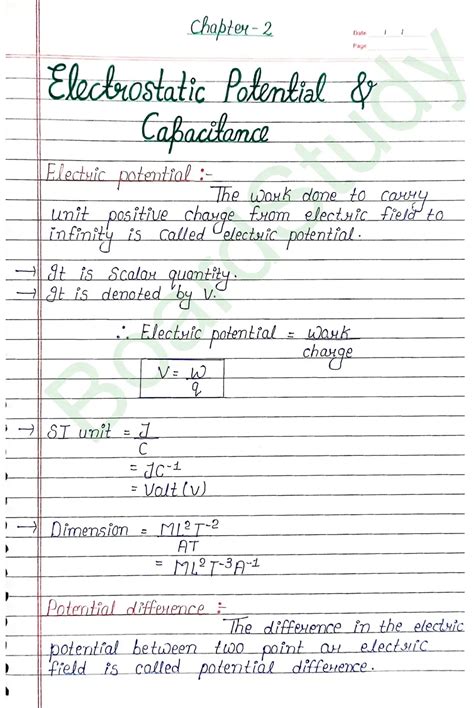 Chapter - 2
Date / /
Page
Electrostatic Potential &
Capacitance
Electric potential :-
The work done to carry
unit positive charge from electric field to
infinity is called electric potential.
→ It is Scalar quantity.
→ It is denoted by V.
∴ Electric potential = work
charge
V = W
q
→ SI unit = J
C
= JC⁻¹
= Volt (V)
→ Dimension = ML²T⁻²
AT
= ML²T⁻³A⁻¹
Potential difference :-
The difference in the electric
potential between two point an electric
field is called potential difference.
BoardStudy